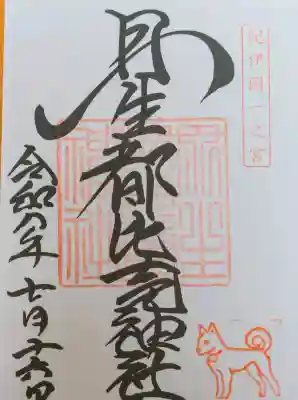 紀伊國一之宮
丹生都比売神社
令和六年七月六日